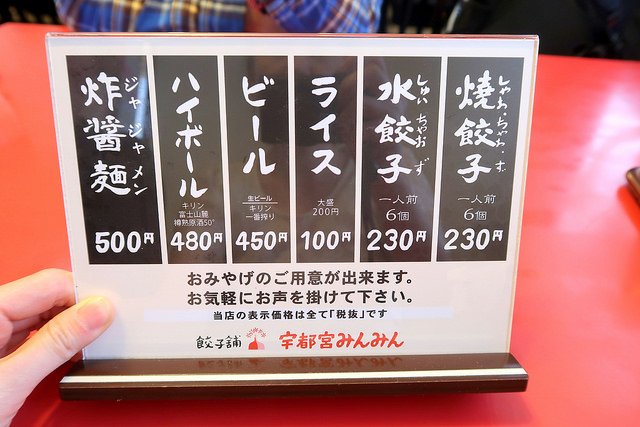 焼餃子
しゃお・ちゃお・ず
一人前
6個
230円
水餃子
しゅいちゃおず
一人前
6個
230円
ライス
大盛
200円
100円
ビール
生ビール
キリン
一番搾り
450円
ハイボール
キリン
富士山麓
樽熟原酒50°
480円
炸醤麺
ジャジャメン
500円
おみやげのご用意が出来ます。
お気軽にお声を掛けて下さい。
当店の表示価格は全て「税抜」です
餃子舗 宇都宮みんみん